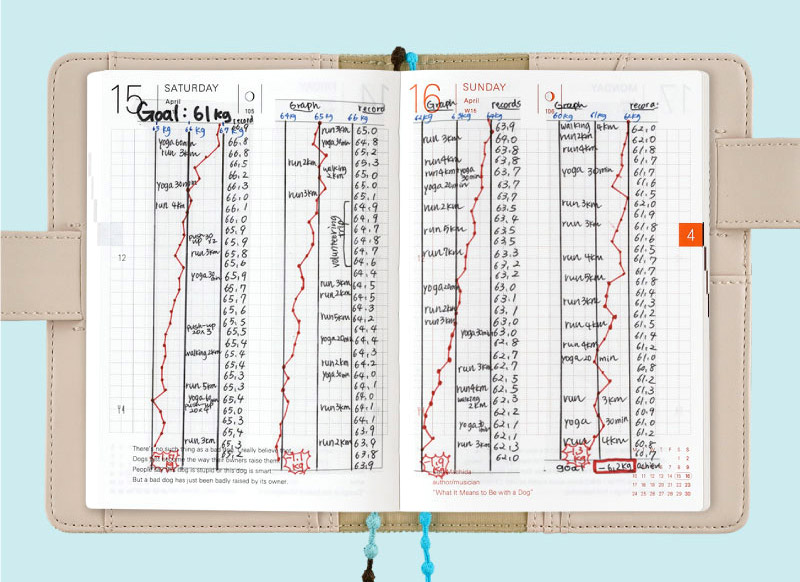 15 SATURDAY
April
105
Goal: 61kg
record
66 kg 67 kg
66.8
yoga 60min 66.8
run 3km 66.5
66.2
yoga 30min 66.3
66.0
run 4km 66.1
66.0
65.9
push-up 65.9
run 3km 65.8
65.6
yoga 30 65.9
65.7
65.7
65.6
65.5
push-up 20×3 65.5
65.4
walking 2km 65.4
65.3
run 5km 65.3
yoga 65.4
push-up 20×4 65.0
65.3
65.4
run 3km 65.3
12
Graph record
64kg 65 kg 66 kg
run 3km 65.0
yoga 30min 64.8
65.2
run 2km 65.3
walking 2km 65.0
65.0
run 3km 65.1
64.9
64.9
volunteering trip 64.7
64.8
64.7
64.6
64.4
run 3km 64.5
run 2km 64.5
64.3
run 5km 64.2
64.4
yoga 20min 64.4
64.3
run 2km 64.2
yoga 30min 64.0
64.1
64.0
run 3km 64.1
64.1
63.9
run 2km 63.9
63.8
-1.1 kg 63.9
There's no such thing as a bad
really believe that.
Dogs
the way their owners raise them.
People say
dog is stupid or this dog is smart
But a bad dog has just been badly raised by its owner.
16 SUNDAY
April
W16
106
Graph records
63kg 64kg
63.9
run 3km 64.0
63.8
run 3km 63.8
run 4km yoga 30min 63.7
yoga 20min 63.7
63.7
run 2km 63.5
63.4
run 5km 63.5
63.5
run 7km 63.3
63.2
63.2
yoga 20min 63.0
63.1
run 2km 63.1
run 3km 63.0
yoga 30min 63.0
62.8
62.7
run 3km 62.7
62.5
run 4km 62.5
walking 2km 62.3
62.2
yoga 30min 62.1
62.1
run 3km 62.3
62.0
-1.9 kg
author/musician
"What It Means to Be with a Dog"
Graph record
60kg 61kg
walking 4km 62.0
run 2km 61.9
run 4km 61.8
61.7
yoga 30min 61.7
61.6
61.5
run 3km 62.0
61.9
run 3km 61.8
61.8
61.5
run 4km 61.7
61.7
run 5km 61.8
61.4
run 3km 61.3
61.2
run 4km 61.5
61.4
run 4km 61.2
yoga 20 min 61.0
60.8
61.2
61.3
run 3km 61.0
60.9
yoga 30min 61.0
61.2
run 4km 60.8
60.7
-1.3 kg
goal -6.2kg
4